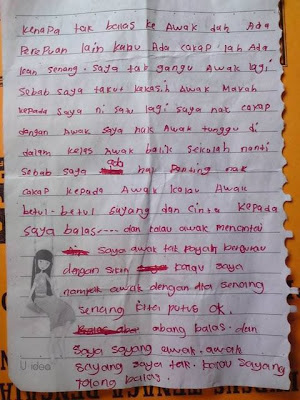 kenapa tak balas ke Awak dah Ada
Perempuan lain kalau Ada cakap lah Ada
kan senang. saya tak gangu Awak lagi
sebab saya takut kekasih Awak Marah
kepada saya ni satu lagi saya nak cakap
dengan Awak saya nak Awak tunggu di
dalam kelas Awak balik sekolah nanti
sebab saya ada hal Penting nak
cakap kepada Awak kalau Awak
betul-betul sayang dan cinta kepada
saya balas---- dan kalau awak mencintai
saya awak tak payah bergurau
dengan saya
nampak awak dengan dia senang
senang kita putus ok.
abang balas. dan
saya sayang awak. awak
sayang saya tak. kalau sayang
tolong balas.
U idea